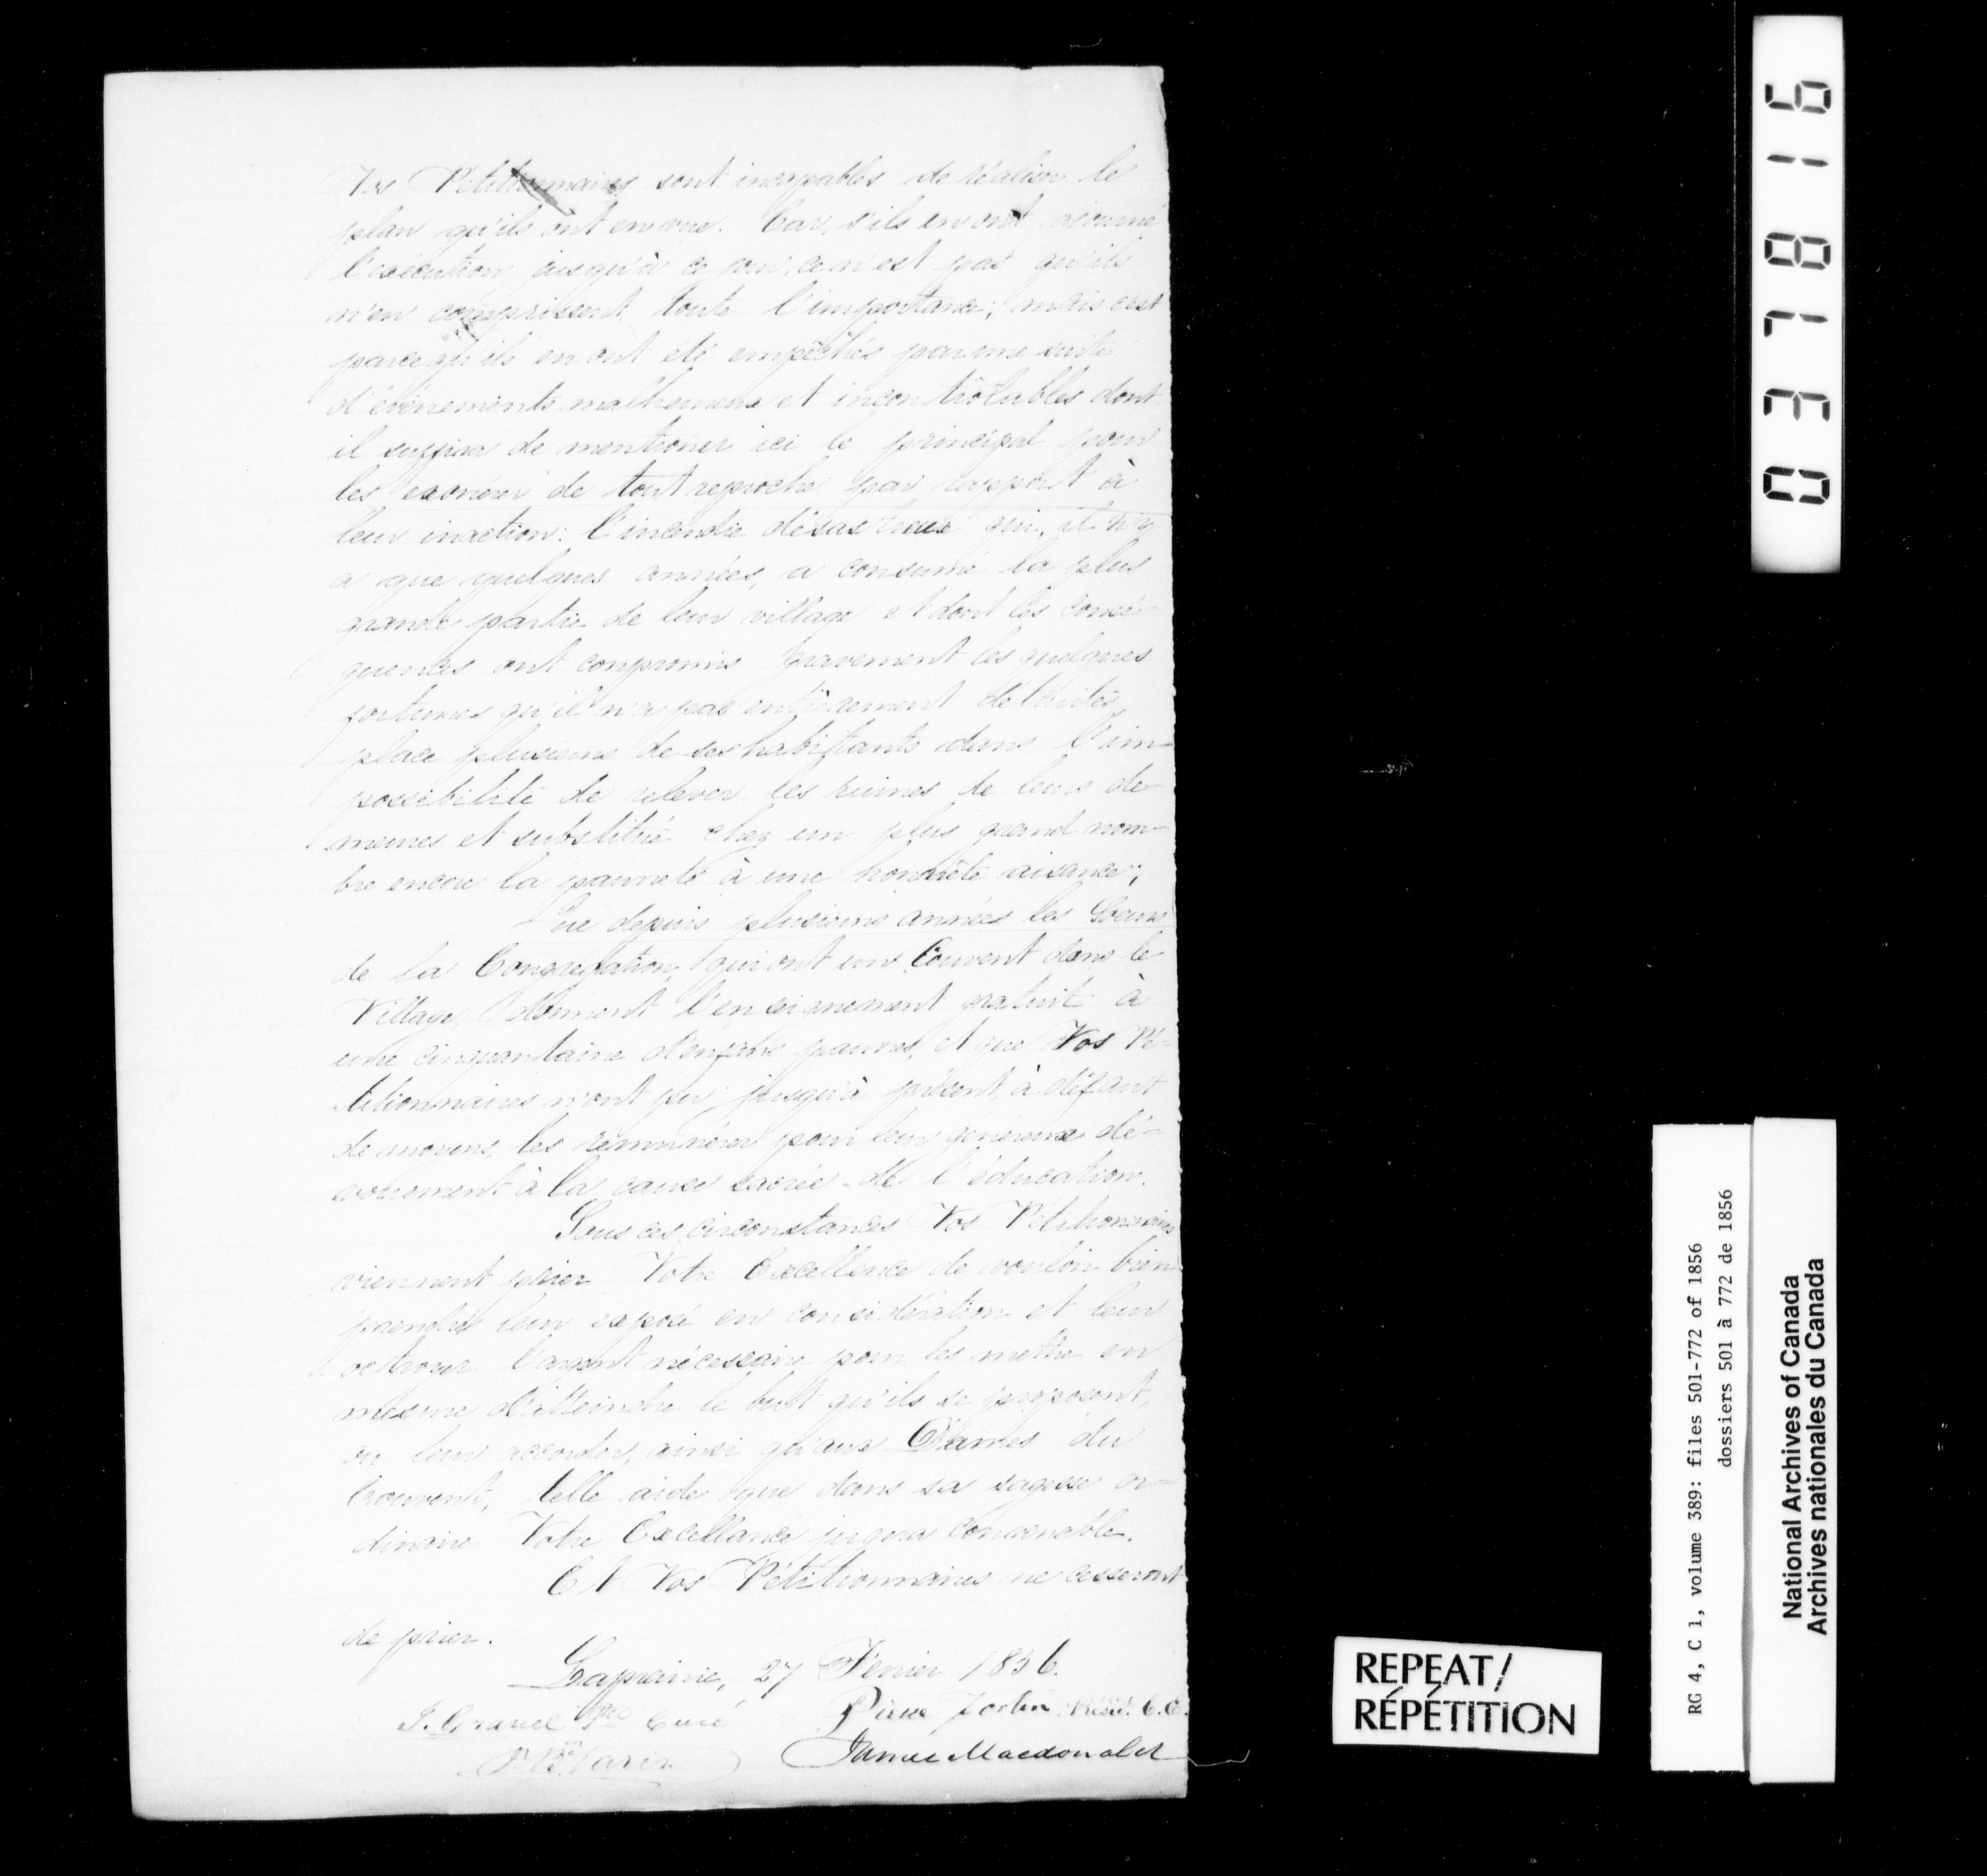 Vos Petitionnaires sont incapables de réaliser le
plan qu'ils ont en vue. Car, s'ils en ont ajourné
l'exécution jusqu'à ce jour, ce n'est pas qu'ils
n'en comprissent toute l'importance; mais c'est
parcequ'ils en ont été empêchés par une suite
d'évènements malheureux et incontrôlables dont
il suffira de mentioner ici le principal pour
les exonérer de tout reproche par rapport à
leur inaction: l'incendie désastreux qui, il n'y
a que quelques années, a consumé la plus
grande partie de leur village et dont les consé-
quences ont compromis gravement les quelques
fortunes qu'il n'a pas entièrement détruites,
placé plusieurs de ses habitants dans l'im-
possibilité de relever les ruines de leurs de-
meures et substitué chez un plus grand nom-
bre encore la pauvreté à une honnête aisance;
Que depuis plusieurs années les Soeurs
de la Congrégation, qui ont un Couvent dans le
Village, donnent l'enseignement gratuit à
une cinquantaine d'enfans pauvres, et que Vos Pé-
titionnaires n'ont pu jusqu'à présent, à défaut
de moyens, les rémunérer pour leur généreux dé-
vouement à la cause sacrée de l'éducation.
Sous ces circonstances Vos Pétitionnaires
viennent prier Votre Excellence de vouloir bien
prendre leur exposé en considération et leur
octroyer l'argent nécessaire pour les mettre en
mesure d'atteindre le but qu'ils se proposent,
ou leur accorder, ainsi qu'aux Dames du
Couvent, telle aide que dans sa sagesse or-
dinaire Votre Excellence jugera convenable.
Et Vos Pétitionnaires ne cesseront
de prier.
Laprairie, 27 Février 1856.
J. Gravel Ptre Curé Pierre Fortin Présid. C.E.
Varin James Macdonald
037816
REPEAT/
RÉPÉTITION
RG 4, C 1, volume 389: files 501-772 of 1856
dossiers 501 à 772 de 1856
National Archives of Canada
Archives nationales du Canada